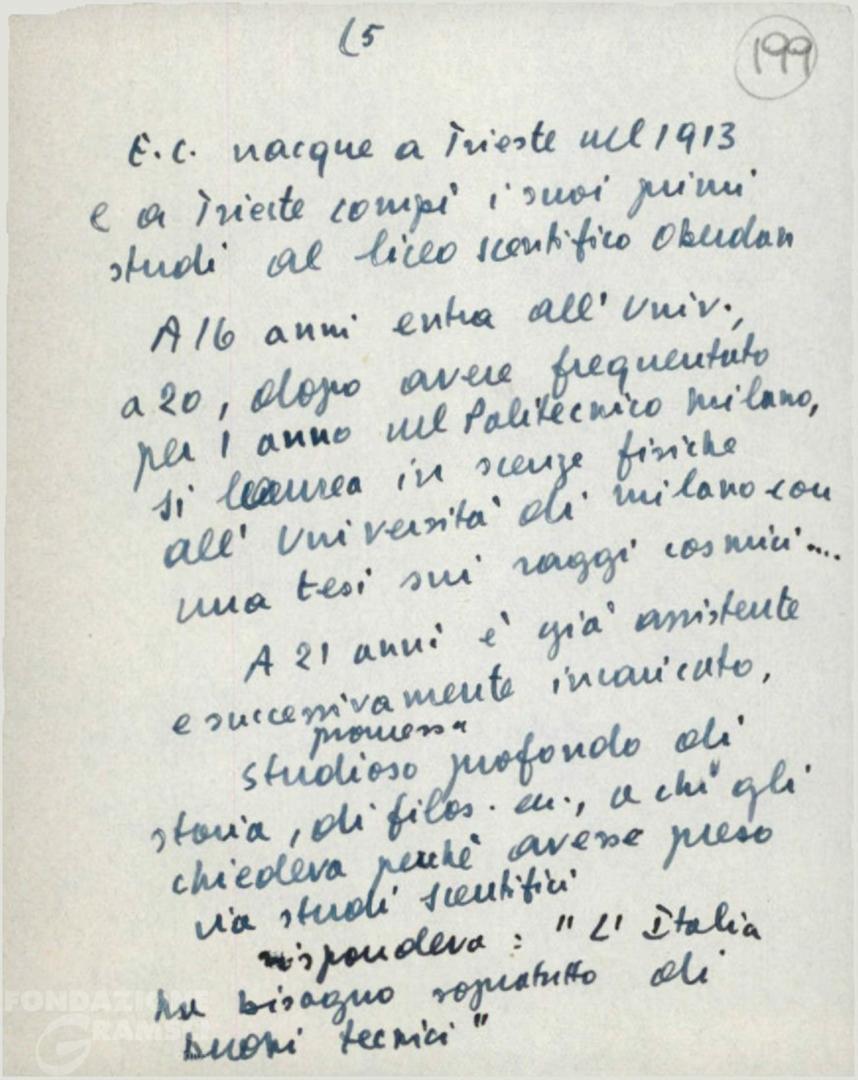 (5
199
E.C. nacque a Trieste nel 1913
e a Trieste compì i suoi primi
studi al liceo scentifico Oberdan
A 16 anni entra all' Univ.,
a 20, dopo avere frequentato
per 1 anno nel Politecnico Milano,
si laurea in scenze fisiche
all' Università di Milano con
una tesi sui raggi cosmici....
A 21 anni è già assistente
e successivamente incaricato,
promessa
studioso profondo di
storia, di filos. , a chi gli
chiedeva perché avesse preso
via studi scentifici
rispondeva : " L' Italia
ha bisogno sopratutto di
buoni tecnici "
FONDAZIONE
GRAMSCI